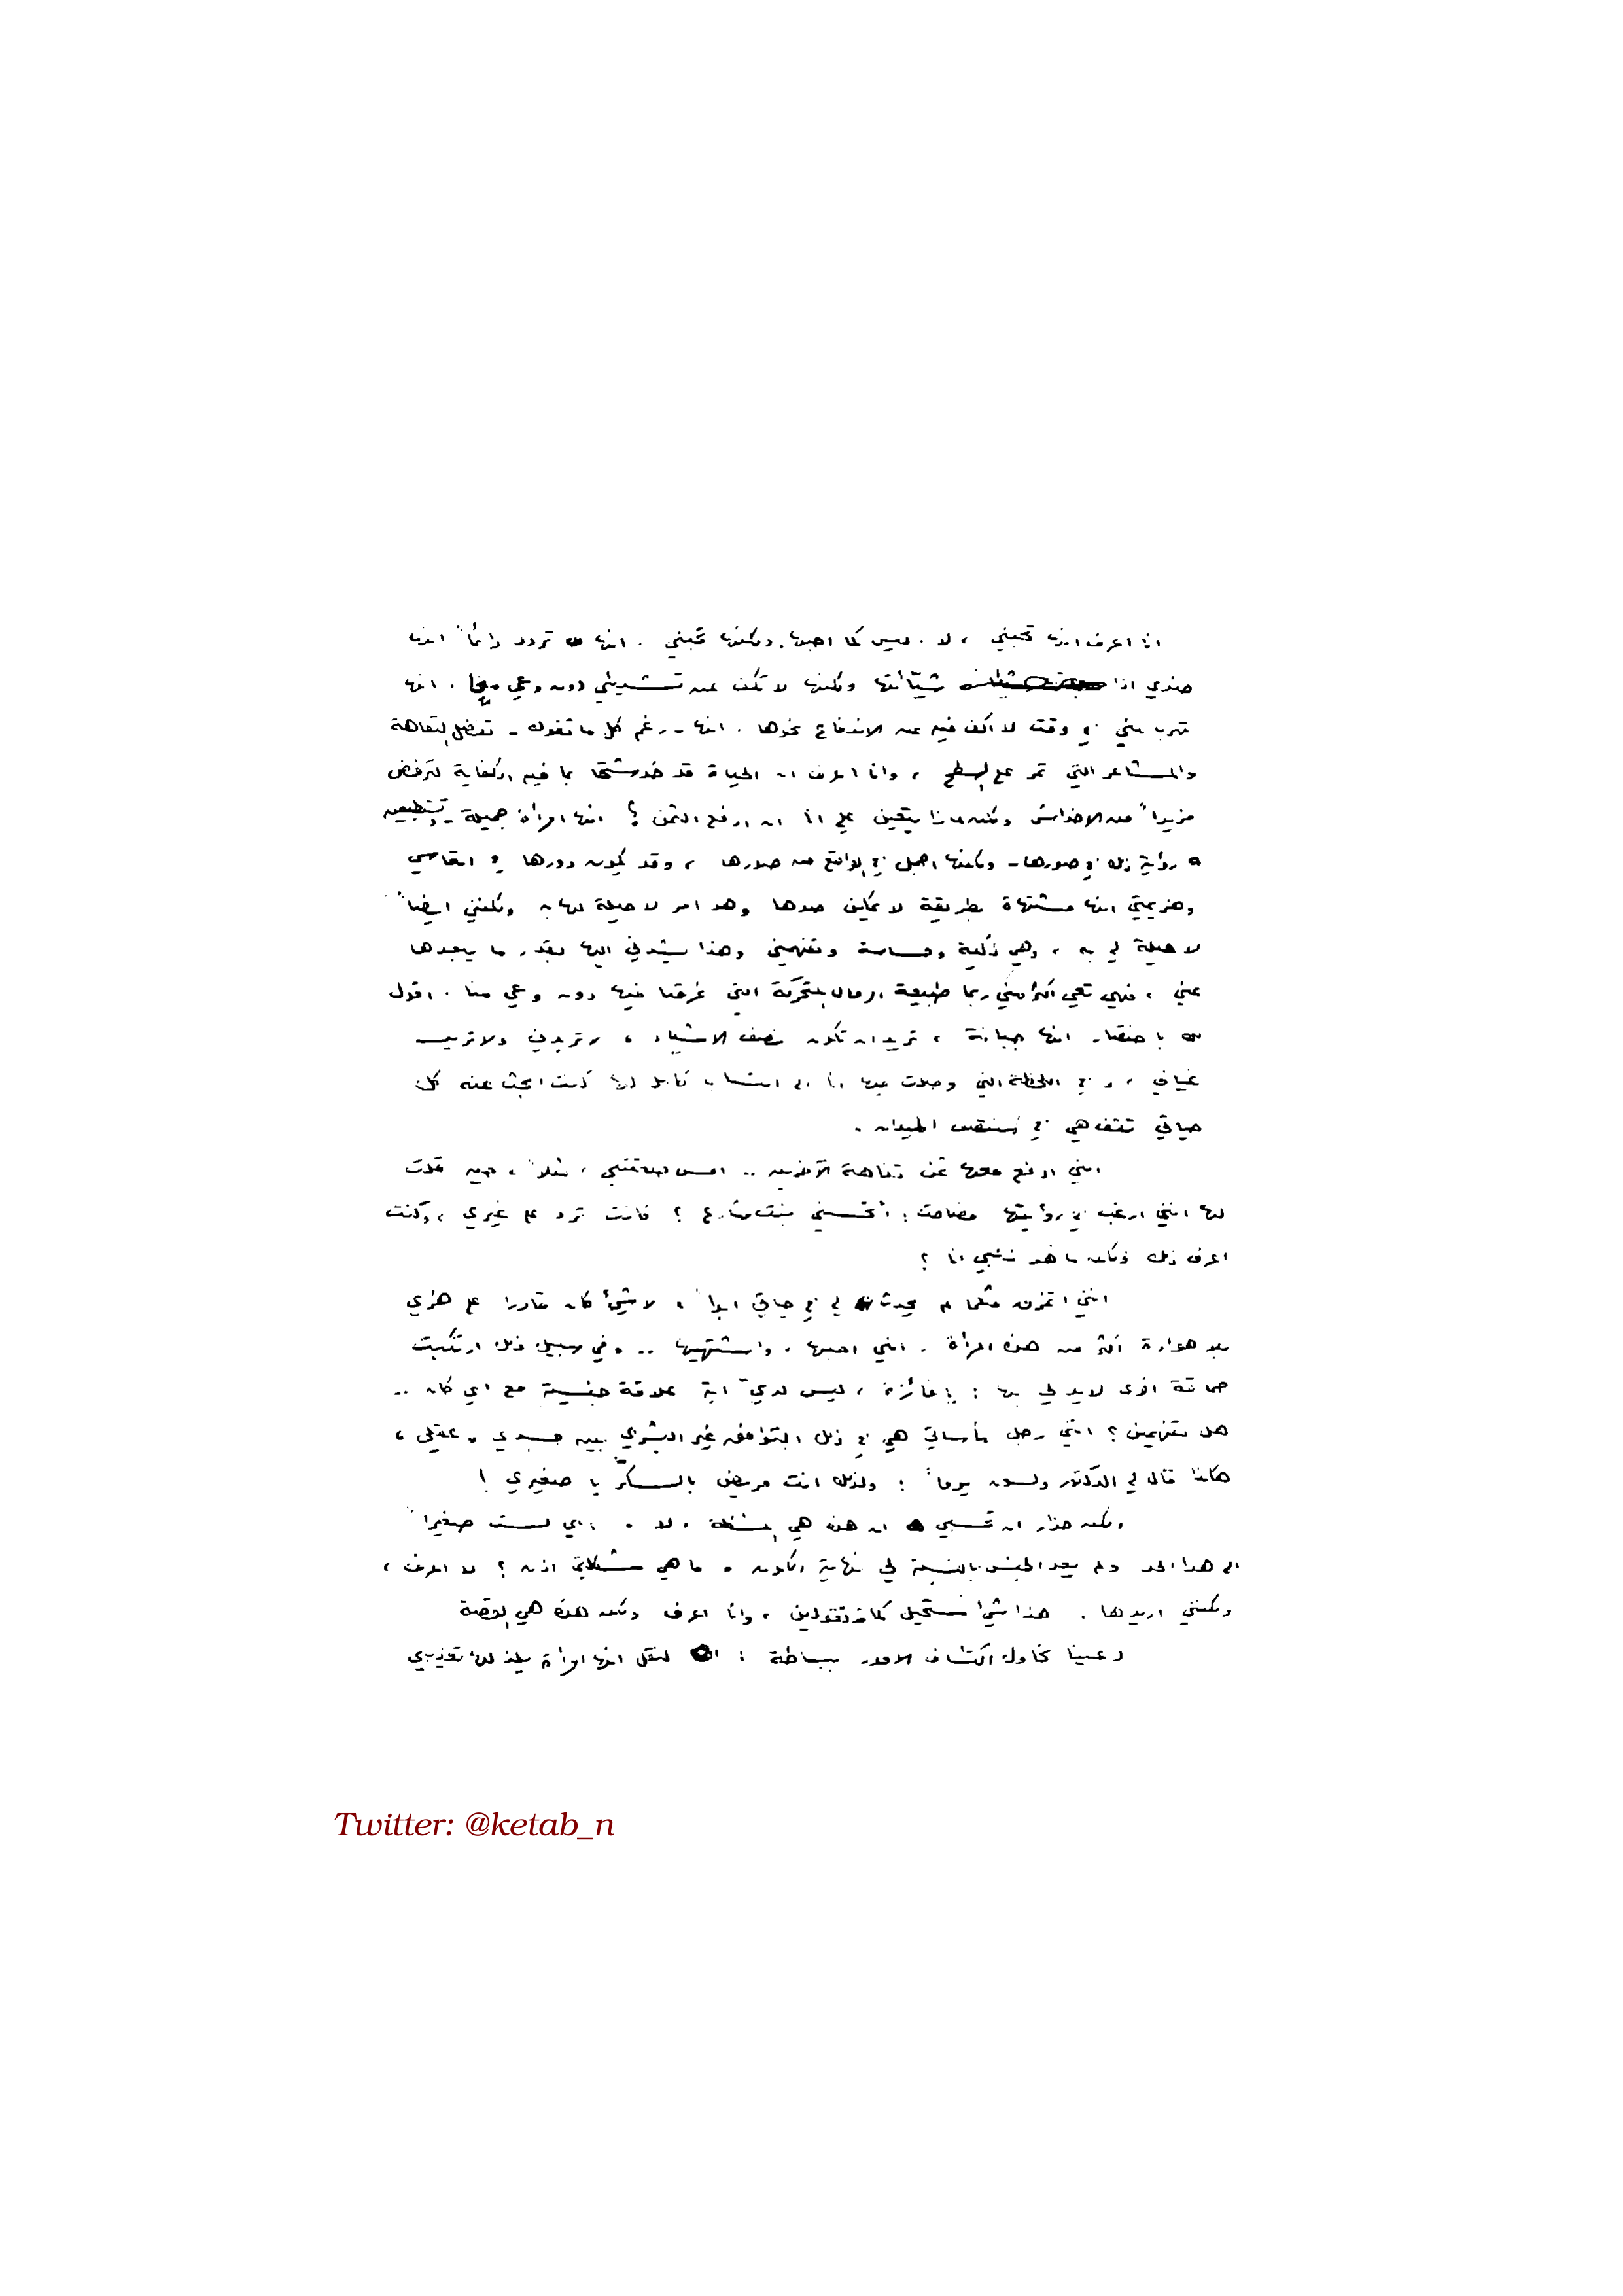 انا اعرف انها تحبني ، لا . ليس كما احبها . ولكنها تحبني . انها تردد دائماً انها
ضدي اذا شيّأتها ولكنها لا تكف عن تشييئي دون وعي منها . انها
تهرب مني في وقت لا اكف فيه عن الاندفاع نحوها . انها - رغم كل ما تقول - تفضل التفاهة
والمشاعر التي تمر على السطح ، وانا اعرف ان الحياة قد خدشتها بما فيه الكفاية لترفض
مزيداً من الاخداش ولكن لماذا يتعين علي انا ان ادفع الثمن ؟ انها امرأة جميلة - وتستطيعين
رؤية ذلك في صورها - ولكنها اجمل في الواقع من صورها ، وقد يكون دورها في انتقاصي
وهزيمتي انها مشتهاة بطريقة لا يمكن صدها وهو امر لا حيلة لها به ولكنني ايضاً
لا حيلة لي به ، وهي ذكية وحساسة وتفهمني وهذا يشدني اليها بقدر ما يبعدها
عني ، فهي تعي اكثر مني ربما طبيعة الرمال المتحركة التي غرقنا فيها دون وعي منا . اقول
باختصار انها جبانة ، تريد ان تكون نصف الاشياء ، لا تريدني ولا تريد
غيابي ، وفي اللحظة التي وصلت فيها انا الى انتساب كامل لها كنت ابحث عنه كل
حياتي تقف هي في منتصف الميدان .
انني ادفع معها ثمن تفاهة الآخرين .. امس صعقتني ، مثلاً ، حين قلت
لها انني ارغب في رؤيتها فصاحت : أتحسبني بنت شارع ؟ كانت ترد على غيري ، وكنت
اعرف ذلك ولكن ما هو ذنبي انا ؟
انني اتمزق مثلما لم يحدث لي في حياتي ابداً ، لا شيء كان قادرا على هزي
بلا هوادة اكثر من هذه المرأة . انني احبها ، واشتهيها .. وفي سبيل ذلك ارتكبت
حماقة اخرى لا يد لي بها : يا فائزة ، ليس لديّ اية علاقة جنسية مع اي كان ..
هل تفهمين ؟ انني رجل مأساتي هي في ذلك التوافق غير البشري بين جسدي وعقلي ،
هكذا قال لي الدكتور ولسون يوماً : ولذلك انت مريض بالسكّر يا صغيري !
ولكن حذار ان تحسبي ان هذه هي المشكلة . لا . انني لست صغيراً
الى هذا الحد ولم يعد الجنس بالنسبة لي نهاية الكون . ما هي مشكلتي اذن ؟ لا اعرف ،
ولكنني اريدها . هذا شيء مستحيل كما قد تقولين ، وانا اعرف ولكن هذه هي القصة
دعينا نحاول اكتشاف الامور ببساطة : لنقل انها امرأة يلذ لها تعذيبي
Twitter: @ketab_n